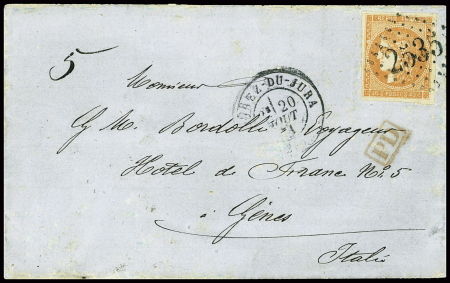 5
2535
Monsieur
MOREZ-DU-JURA
20
AOUT
71
G. M. Bordolli Voyageur
Hotel de France No. 5
PD
à Gênes
Italie